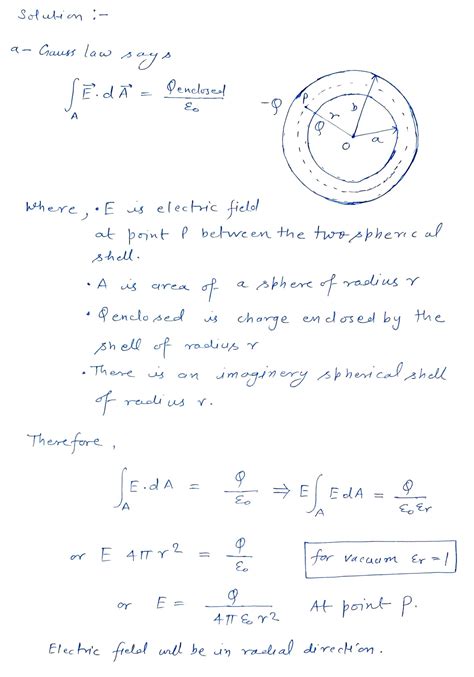 Solution :-
a- Gauss law says
∫_A E⃗ . d A⃗ = Qenclosed / ε0
-Q P r b Q O a
Where, • E is electric field
at point P between the two spherical
shell.
• A is area of a sphere of radius r
• Qenclosed is charge enclosed by the
shell of radius r
• There is an imaginery spherical shell
of radius r.
Therefore,
∫_A E . dA = Q / ε0 ⇒ E ∫_A E dA = Q / ε0 εr
or E 4π r² = Q / ε0 for vacuum εr = 1
or E = Q / 4π ε0 r² At point P.
Electric field will be in radial direction.